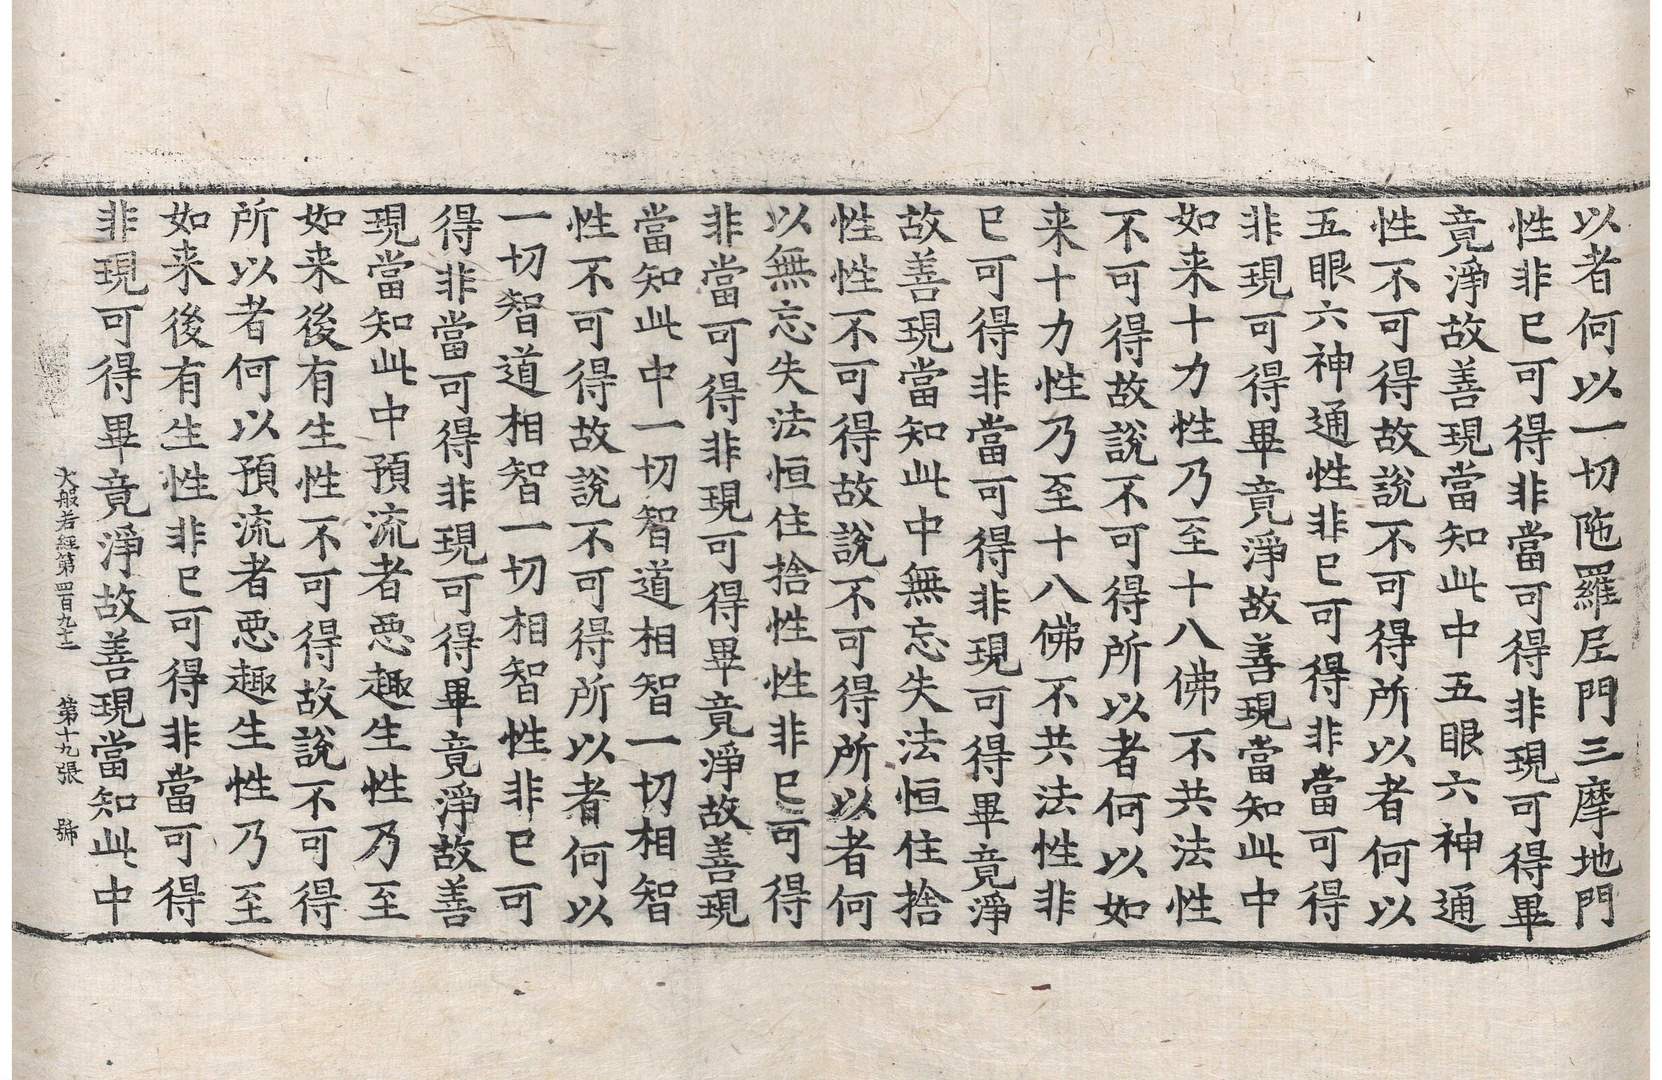 以者何以一切陁羅尼門三摩地門
性非已可得非當可得非現可得畢
竟淨故善現當知此中五眼六神通
性不可得故說不可得所以者何以
五眼六神通性非已可得非當可得
非現可得畢竟淨故善現當知此中
如来十力性乃至十八佛不共法性
不可得故說不可得所以者何以如
来十力性乃至十八佛不共法性非
已可得非當可得非現可得畢竟淨
故善現當知此中無忘失法恒住捨
性性不可得故說不可得所以者何
以無忘失法恒住捨性性非已可得
非當可得非現可得畢竟淨故善現
當知此中一切智道相智一切相智
性不可得故說不可得所以者何以
一切智道相智一切相智性非已可
得非當可得非現可得畢竟淨故善
現當知此中預流者悪趣生性乃至
如来後有生性不可得故說不可得
所以者何以預流者悪趣生性乃至
如来後有生性非已可得非當可得
非現可得畢竟淨故善現當知此中
大般若經第四百九十一 第十九張 號